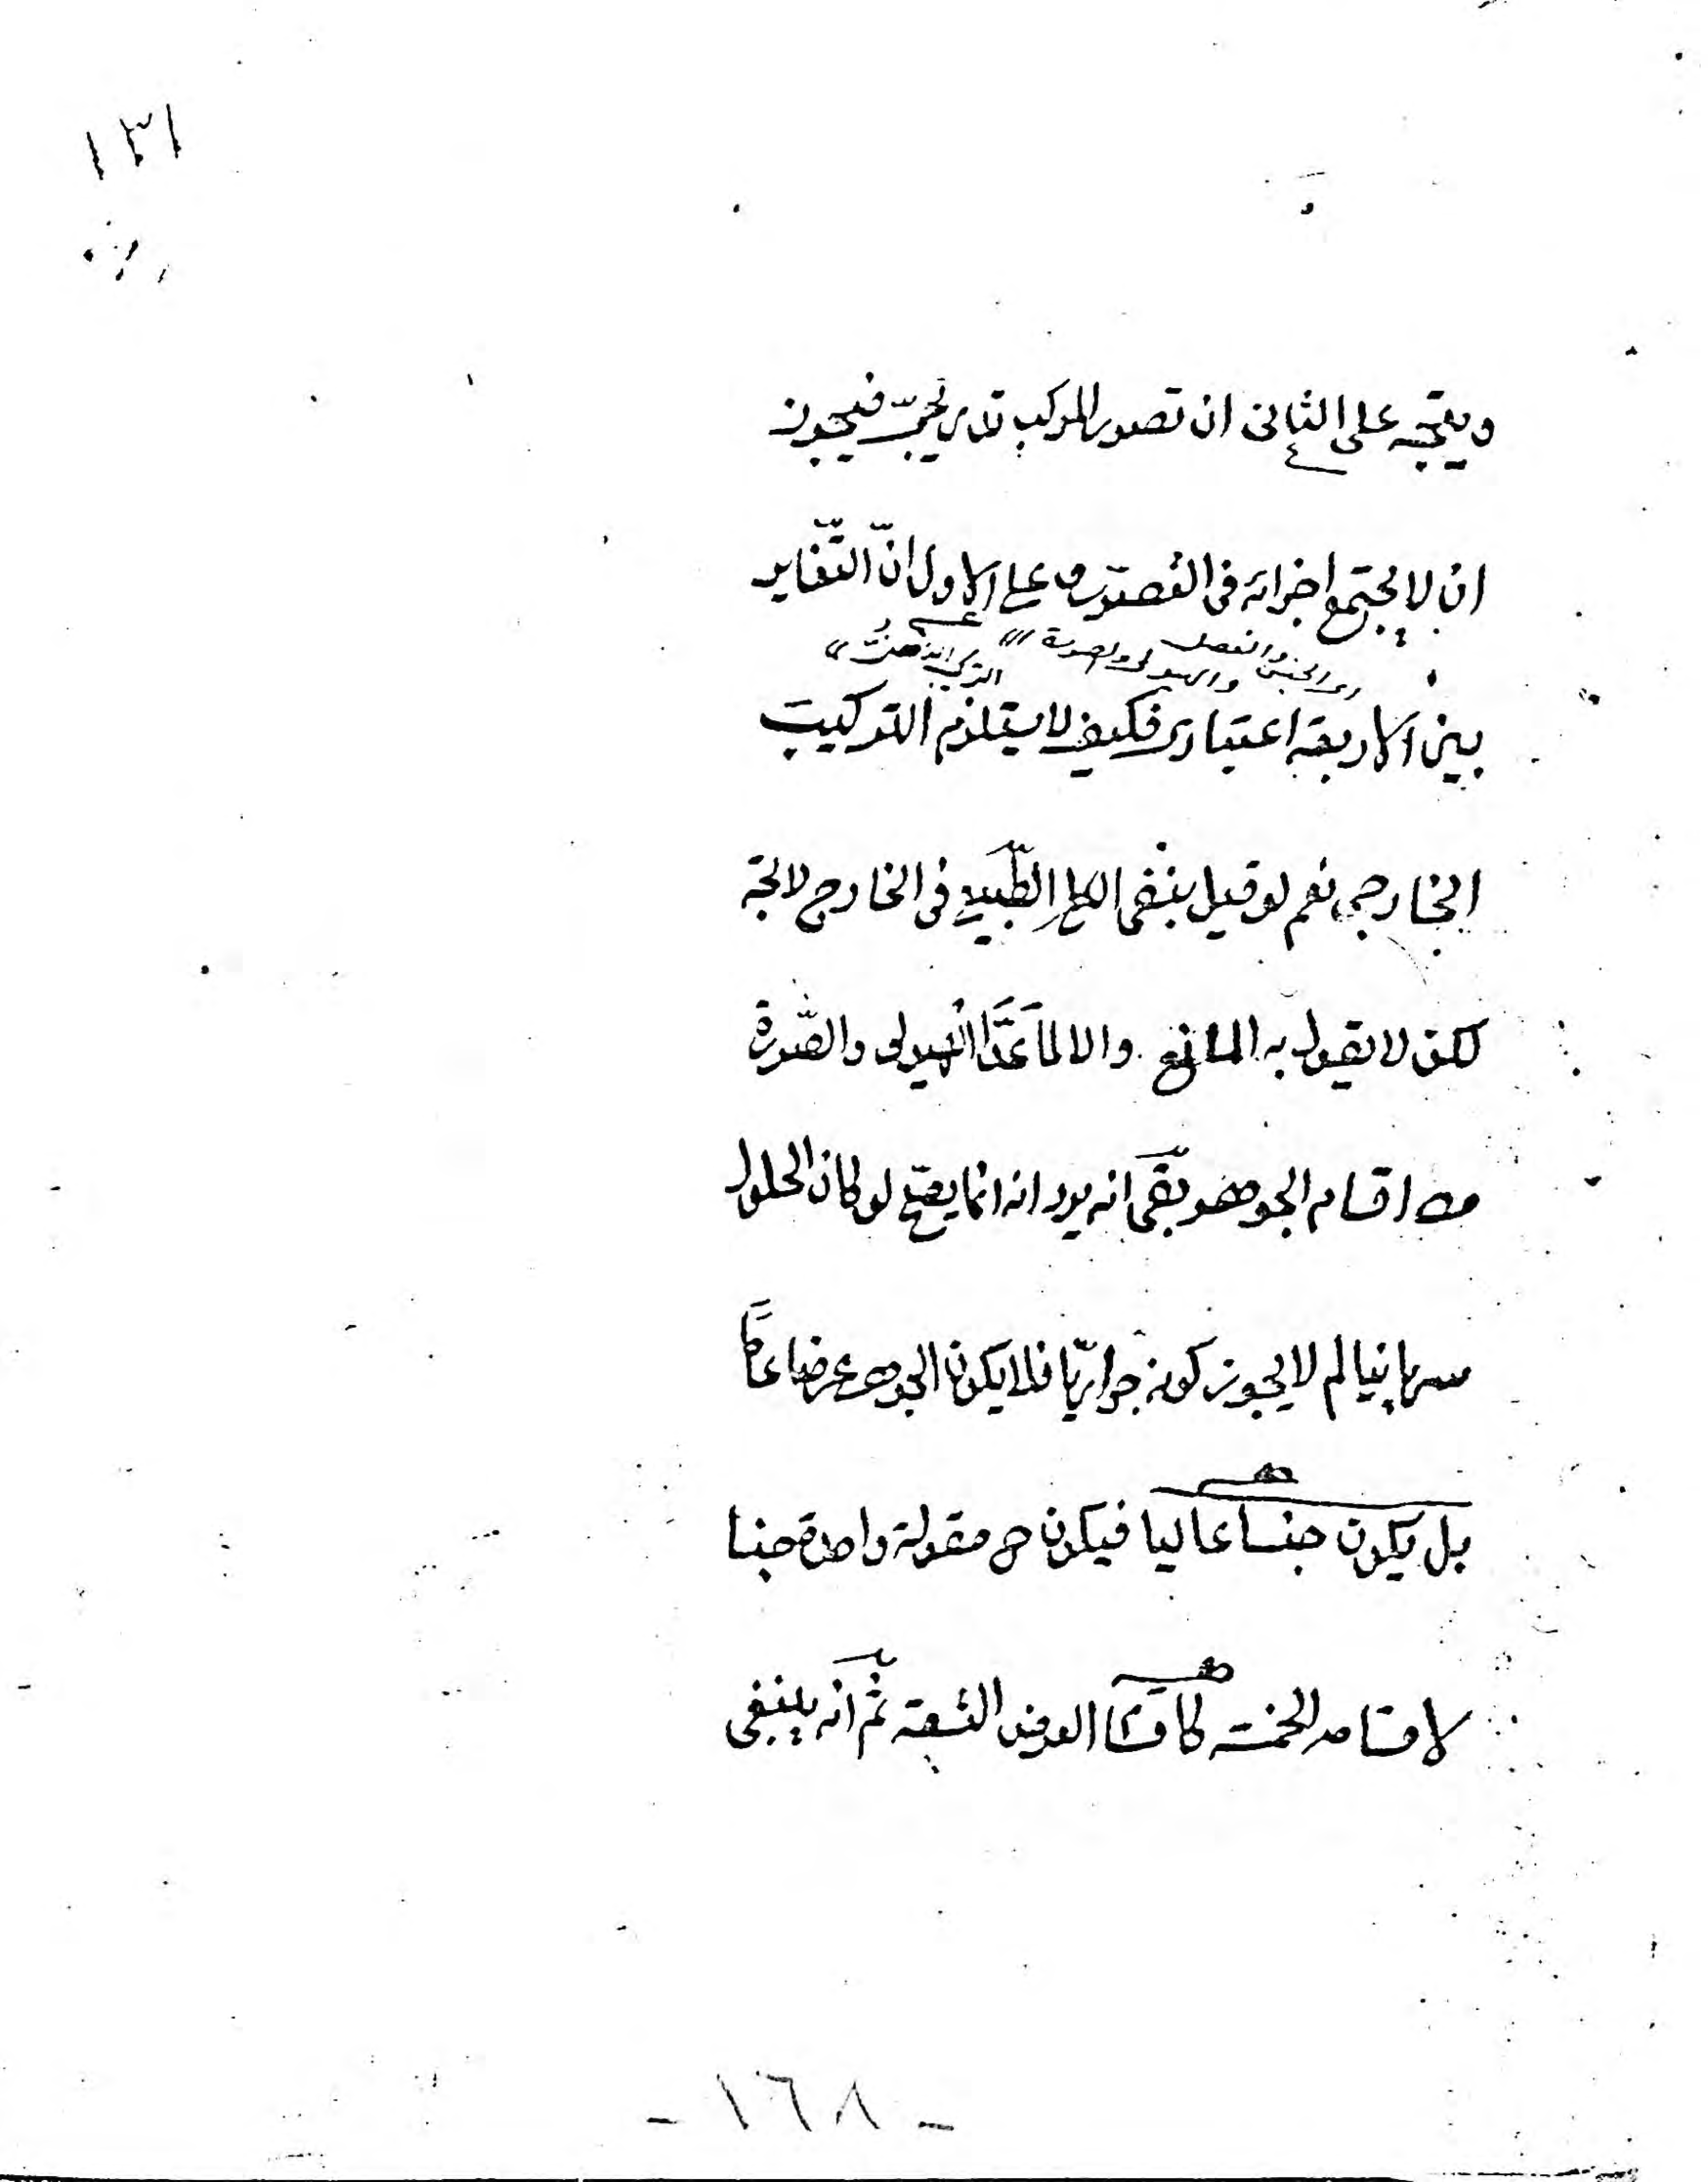 ١٣١
ويتجه على الثانى ان تصور المركب تدريجىّ فيجوز
ان لا يجتمع اجزائه فى التصور وعلى الاول انّ التّغاير
اى الجنس والفصل والهيولى والصورة
التركيب الذهنى
بين الاربعة اعتبارى فكيف لا يستلزم التركيب
الخارجى نعم لو قيل بنفى الكلى الطّبيعى فى الخارج لاتجه
لكن لا يقول به المانع والا لما عدّ الهيولى والصّورة
من اقسام الجوهر بقى انه يرد انه انما يصحّ لو كان الحلول
سريانيا لم لا يجوز كونه جواريّا فلا يكون الجوهر عرضا عامّا
بل يكون جنسا عاليا فيكون ح مقولة واحدة جنسا
لاقسامه الخمسة كاقسام العرض التسعة ثمّ انه ينبغى
- ١٦٨ -